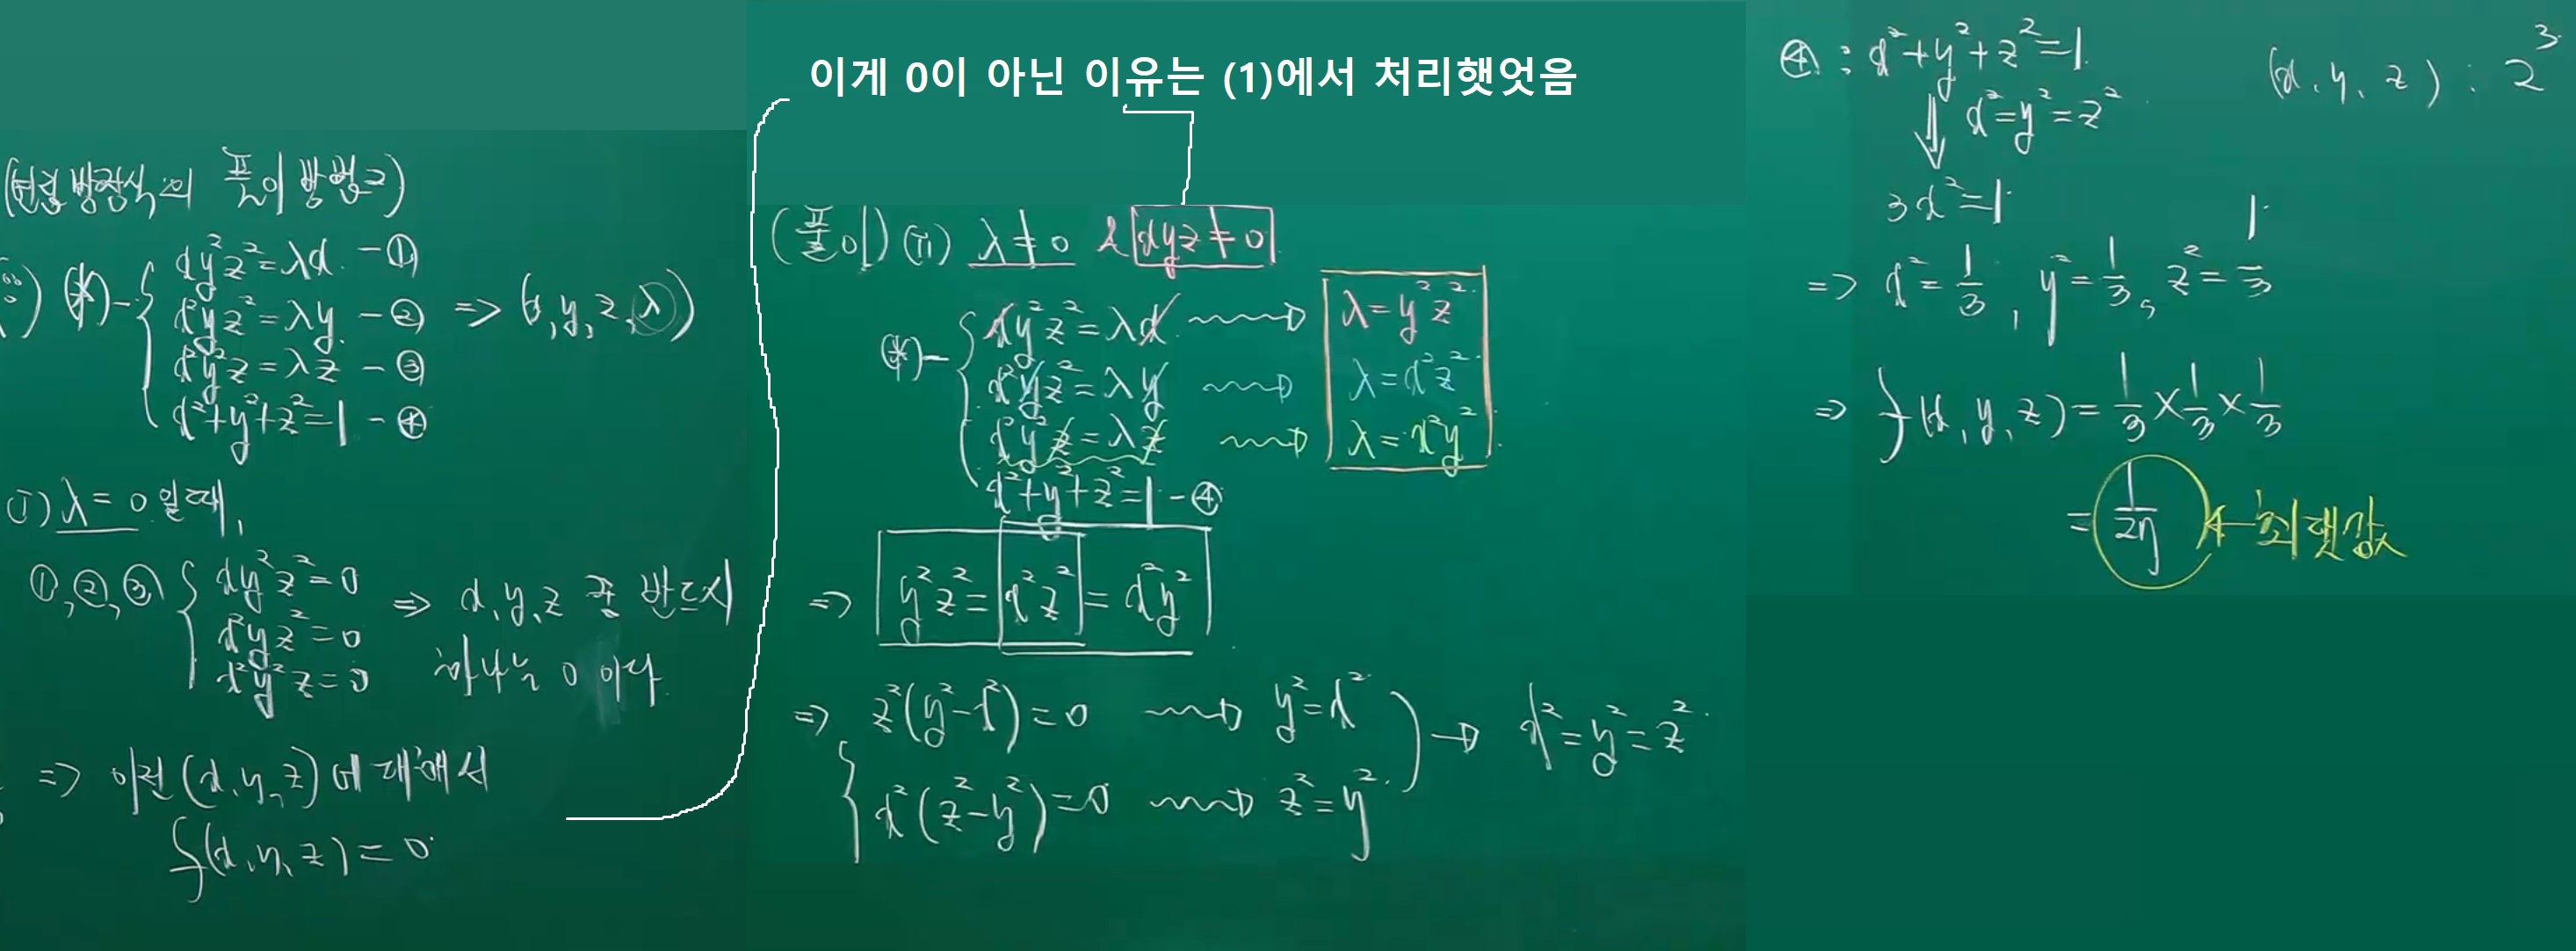 (연립방정식의 풀이 방법2)
(*) - { xy²z² = λx - ①
x²yz² = λy - ② => (x, y, z, λ)
x²y²z = λz - ③
x²+y²+z²=1 - ④
(i) λ = 0 일때,
①,②,③ { xy²z²=0
x²yz²=0 => x,y,z 중 반드시
x²y²z=0 하나는 0 이다.
=> 이런 (x,y,z)에 대해서
f(x,y,z)=0.
이게 0이 아닌 이유는 (1)에서 처리햇엇음
(풀이) (ii) λ≠0 & xyz≠0
(*) - { xy²z²=λx ⟿ λ=y²z²
x²yz²=λy ⟿ λ=x²z²
x²y²z=λz ⟿ λ=x²y²
x²+y²+z²=1 - ④
=> y²z²=x²z²=x²y²
=> { z²(y²-x²)=0 ⟿ y²=x²
x²(z²-y²)=0 ⟿ z²=y² ) → x²=y²=z²
④ : x²+y²+z²=1 (x,y,z) : 2³
⇓ x²=y²=z²
3x²=1
=> x²=1/3, y²=1/3, z²=1/3
=> f(x,y,z)=1/3×1/3×1/3
=1/27 ← 최댓값